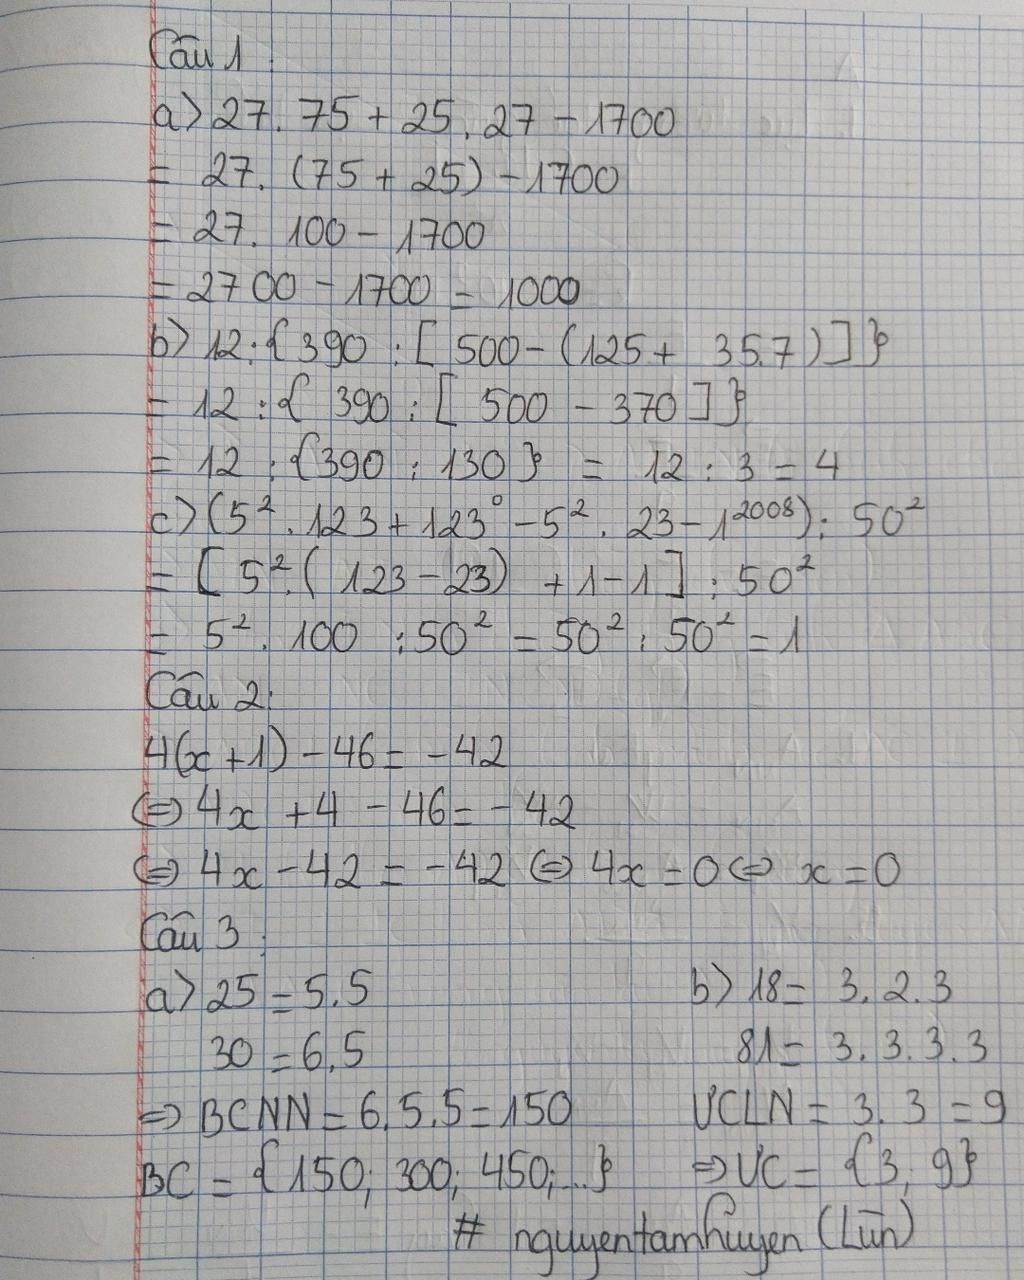 Câu 1:
a) 27. 75 + 25. 27 - 1700
= 27. (75 + 25) - 1700
= 27. 100 - 1700
= 2700 - 1700 = 1000
b) 12:{390 : [ 500 - (125 + 35.7)]}
= 12 :{ 390 : [ 500 - 370]}
= 12 : {390 : 130} = 12 : 3 = 4
c) (5². 123 + 123⁰ - 5². 23 - 1²⁰⁰⁸): 50²
= [ 5².( 123 - 23) + 1 - 1 ] : 50²
= 5². 100 : 50² = 50² : 50² = 1
Câu 2:
4(x + 1) - 46 = - 42
⇔ 4x + 4 - 46 = - 42
⇔ 4x - 42 = - 42 ⇔ 4x = 0 ⇔ x = 0
Câu 3:
a) 25 = 5. 5
30 = 6. 5
⇒ BCNN = 6. 5. 5 = 150
BC = {150; 300; 450;...}
b) 18 = 3. 2. 3
81 = 3. 3. 3. 3
ƯCLN = 3. 3 = 9
⇒ ƯC = {3; 9}
# nguyentamhuyen (Lùn)